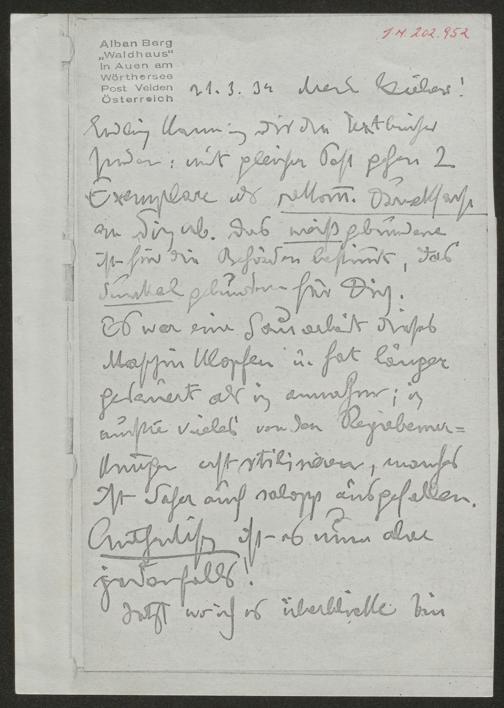 Alban Berg
„Waldhaus“
in Auen am
Wörthersee
Post Velden
Österreich
J.N. 202.952
21.3.34 Mein Lieber!
Endlich kann ich dir die Textbücher
senden: mit gleicher Post gehen 2
Exemplare als rekom. Drucksache
an Dich ab. Das weiß gebundene
ist für die Behörden bestimmt, das
dunkel gebundene für Dich.
Es war eine Sauarbeit dieses
Maschin Klopfen u. hat länger
gedauert als ich annahm; ich
mußte vieles von den Regiebemer=
kungen erst stilisieren, manches
ist daher auch salopp ausgefallen.
Authentisch ist es nun aber
jedenfalls!
Jetzt wo ich es überblicke bin